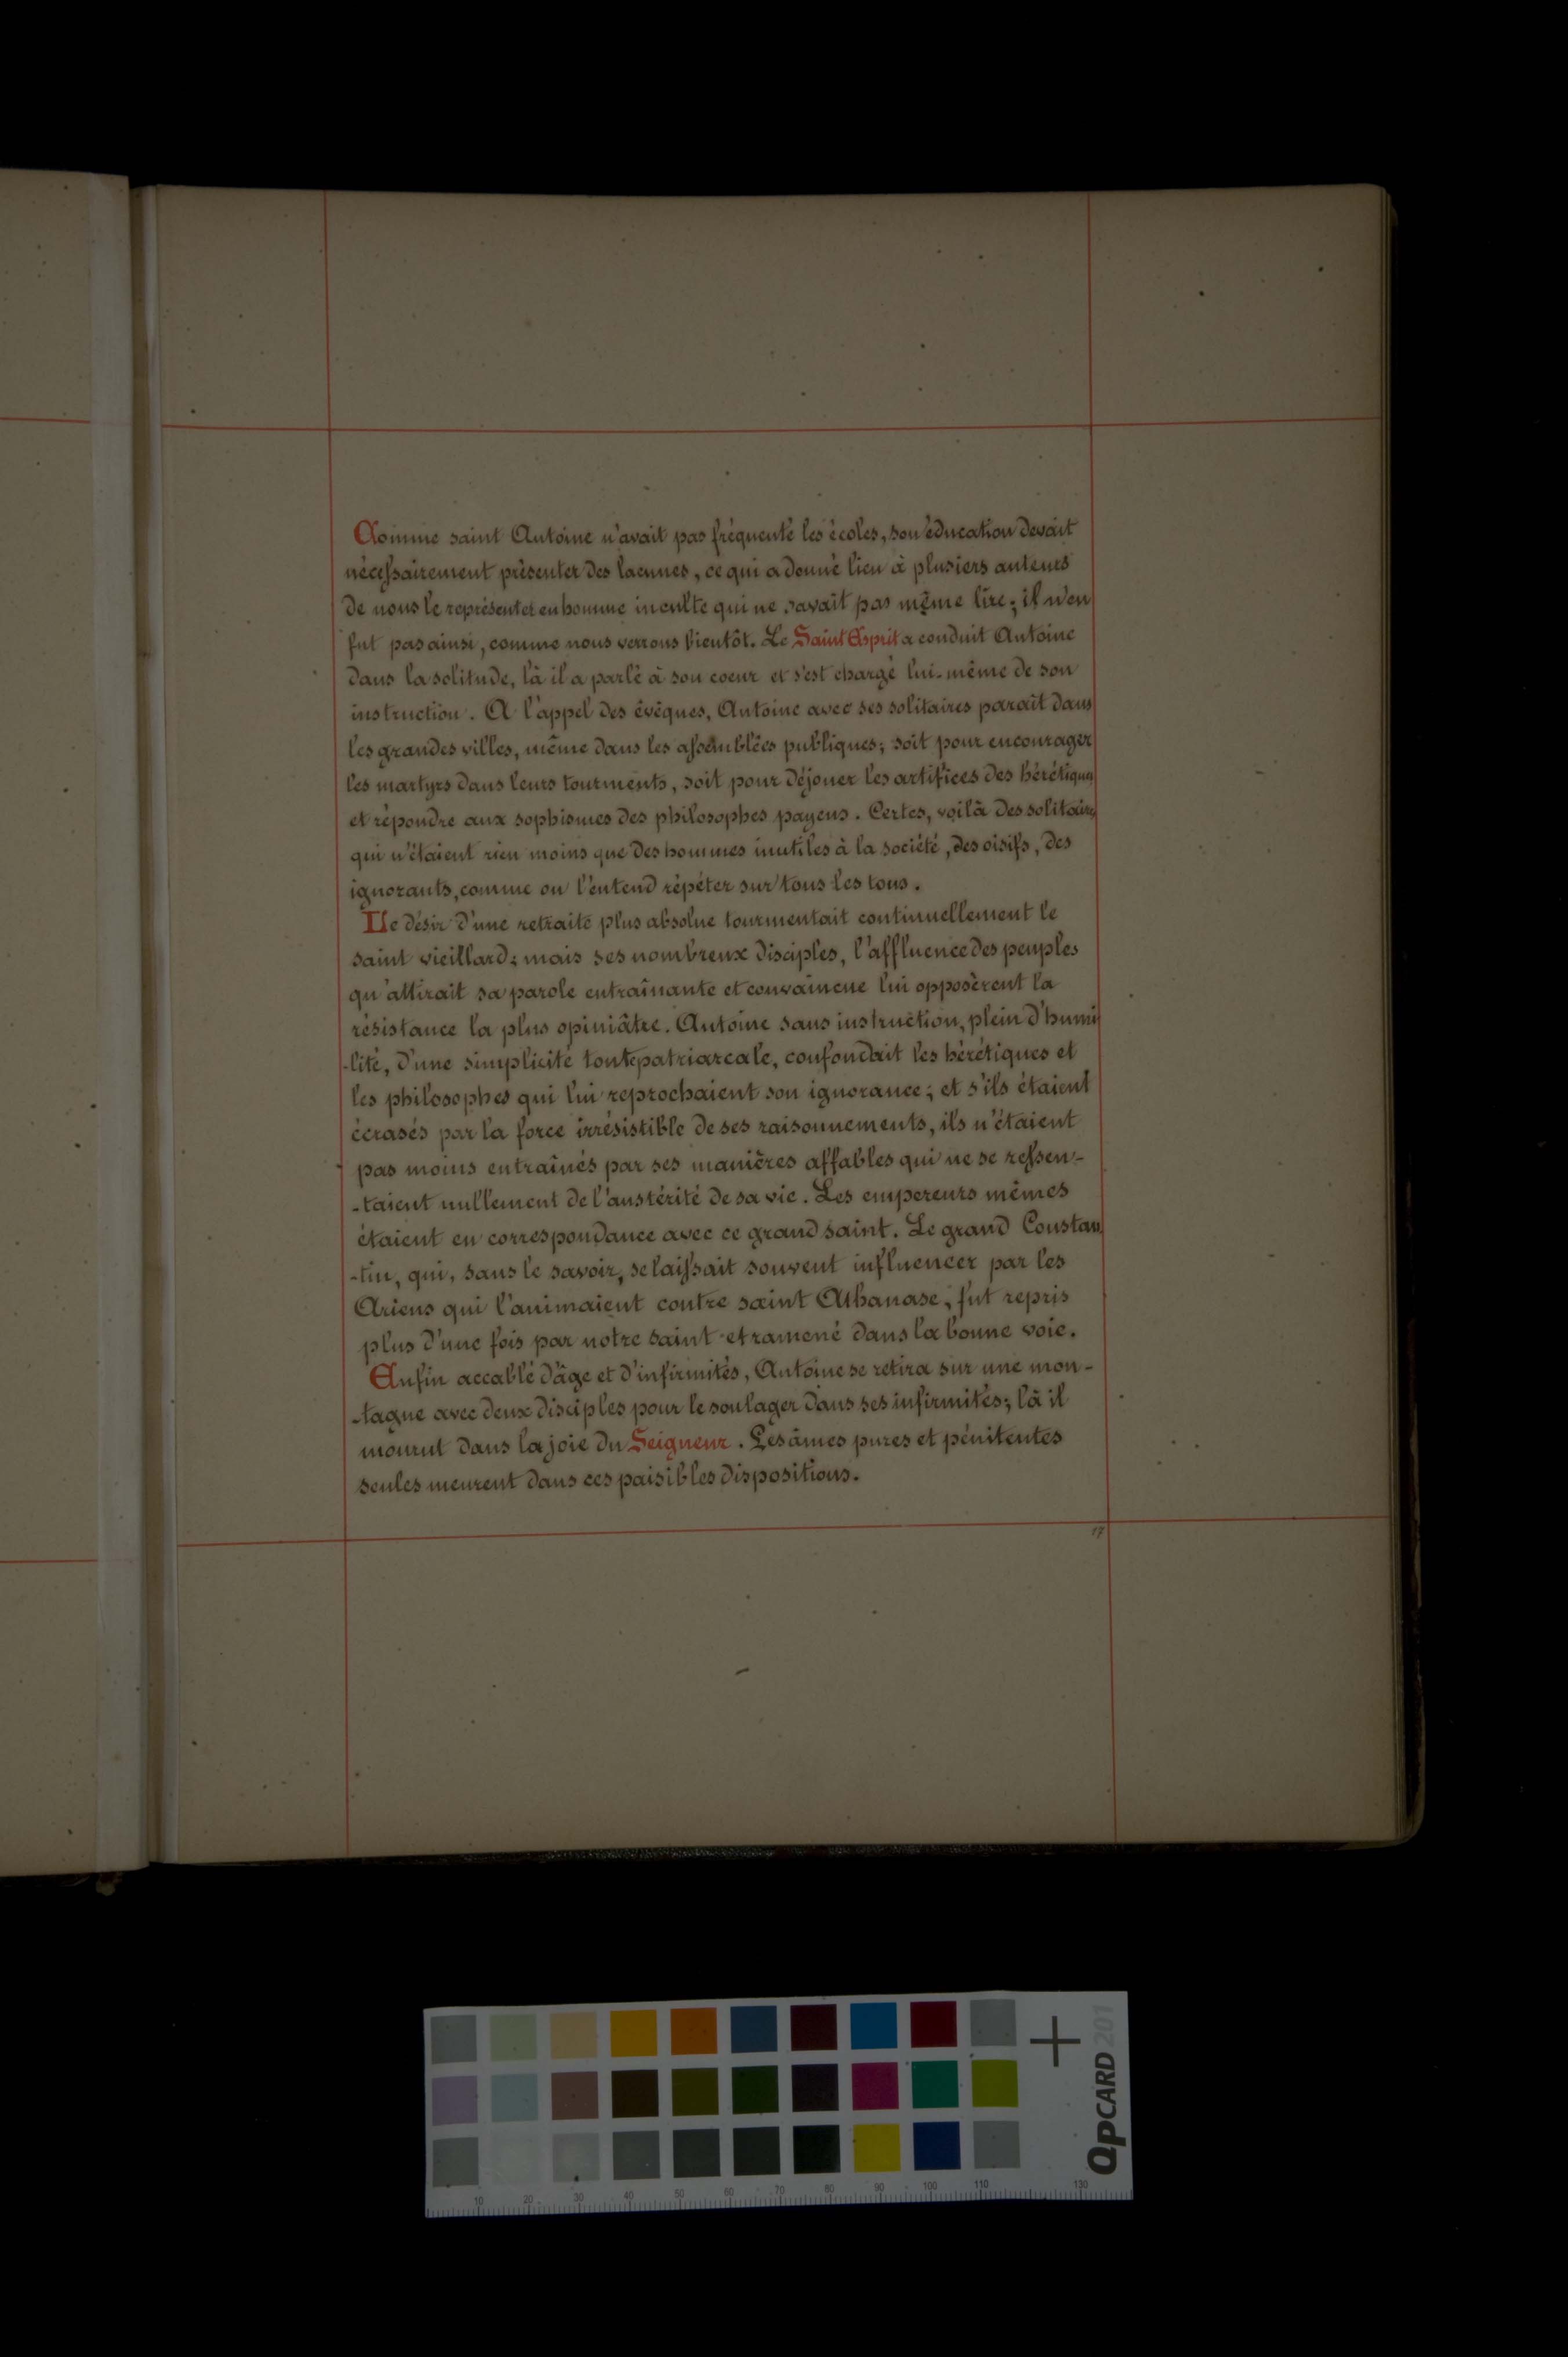 Comme saint Antoine n'avait pas fréquenté les écoles, son éducation devait
nécessairement présenter des lacunes, ce qui a donné lieu à plusiers auteurs
de nous le représenter en homme inculte qui ne savait pas même lire; il n'en
fut pas ainsi, comme nous verrons bientôt. Le Saint Esprit a conduit Antoine
dans la solitude, là il a parlé à son coeur et s'est chargé lui-même de son
instruction. A l'appel des évêques, Antoine avec ses solitaires parait dans
les grandes villes, même dans les assemblées publiques; soit pour encourager
les martyrs dans leurs tourments, soit pour déjouer les artifices des hérétiques
et répondre aux sophismes des philosophes payens. Certes, voilà des solitaires
qui n'étaient rien moins que des hommes inutiles à la société, des oisifs, des
ignorants, comme on l'entend répéter sur tous les tons.
Le désir d'une retraite plus absolue tourmentait continuellement le
saint vieillard; mais ses nombreux disciples, l'affluence des peuples
qu'attirait sa parole entraînante et convaincue lui opposèrent la
résistance la plus opiniâtre. Antoine sans instruction, plein d'humi
-lité, d'une simplicité toute patriarcale, confondait les hérétiques et
les philosophes qui lui reprochaient son ignorance; et s'ils étaient
écrasés par la force irrésistible de ses raisonnements, ils n'étaient
pas moins entraînés par ses manières affables qui ne se ressen-
-taient nullement de l'austérité de sa vie. Les empereurs mêmes
étaient en correspondance avec ce grand saint. Le grand Constan
-tin, qui, sans le savoir, se laissait souvent influencer par les
Ariens qui l'animaient contre saint Athanase, fut repris
plus d'une fois par notre saint et ramené dans la bonne voie.
Enfin accablé d'âge et d'infirmités, Antoine se retira sur une mon-
-tagne avec deux disciples pour le soulager dans ses infirmités; là il
mourut dans la joie du Seigneur. Les âmes pures et pénitentes
seules meurent dans ces paisibles dispositions.
17
QPCARD 201
10 20 30 40 50 60 70 80 90 100 110 130